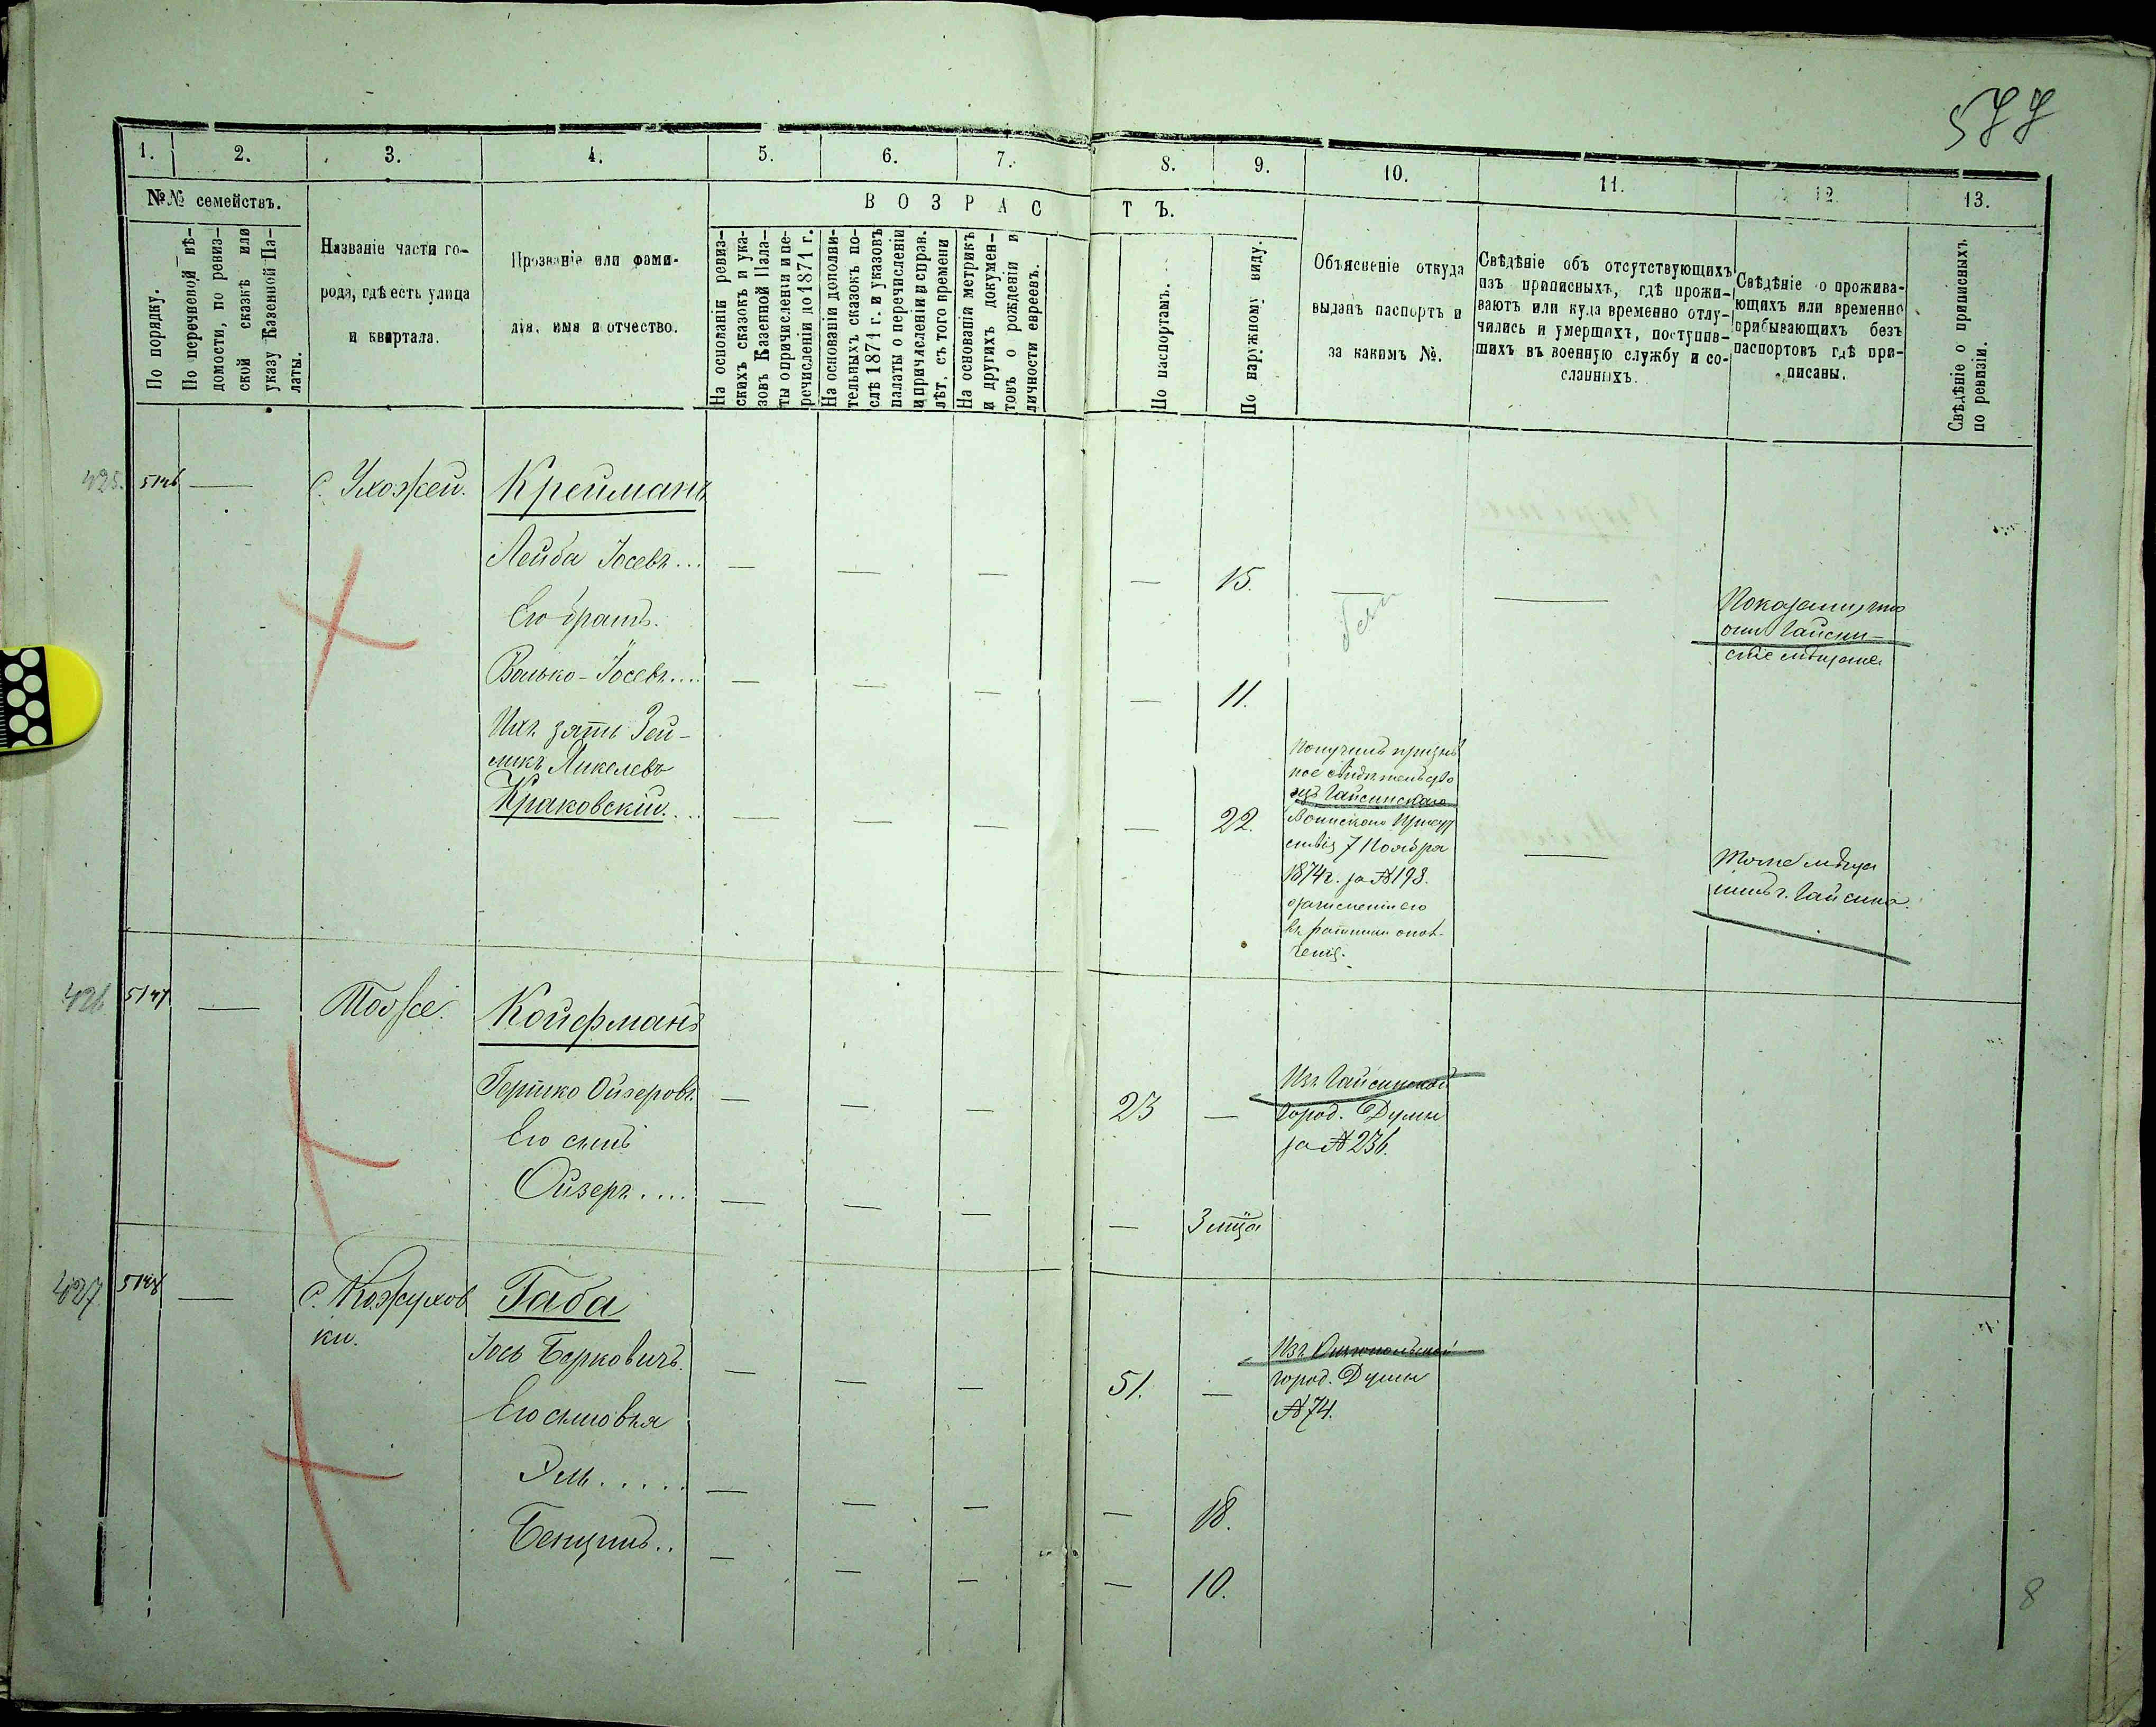 577
1. 2. 3. 4. 5. 6. 7. 8. 9. 10. 11. 12. 13.
№№ семействъ.
По порядку.
По перечневой вѣ-
домости, по ревиз-
ской сказкѣ или
указу Казенной Па-
латы.
Названіе части го-
рода, гдѣ есть улица
и квартала.
Прозваніе или фами-
лія, имя и отчество.
ВОЗРАСТЪ.
На основаніи ревиз-
скихъ сказокъ и ука-
зовъ Казенной Пала-
ты о причисленіи и пе-
речисленіи до 1871 г.
На основаніи дополни-
тельныхъ сказокъ по-
слѣ 1871 г. и указовъ
палаты о перечисленіи
и причисленіи и справ.
лѣт. съ того времени
На основаніи метрикъ
и другихъ докумен-
товъ о рожденіи и
личности евреевъ.
По паспортамъ.
По наружному виду.
Объясненіе откуда
выданъ паспортъ и
за какимъ №.
Свѣдѣніе объ отсутствующихъ
изъ приписныхъ, гдѣ прожи-
ваютъ или куда временно отлу-
чились и умершихъ, поступив-
шихъ въ военную службу и со-
сланныхъ.
Свѣдѣніе о прожива-
ющихъ или временно
прибывающихъ безъ
паспортовъ гдѣ при-
писаны.
Свѣдѣніе о приписныхъ
по ревизіи.
425. 5146 — с. Ухожей. Крейманъ
Лейба Іосевъ... — — — — 15. — —
Его братъ.
Волько-Іосевъ.... — — — — 11.
Показали, что
они Гайсин-
скіе мѣщане
Ихъ зять Зей-
ликъ Микелевъ
Краковскій... — — — — 22.
Получилъ призыв
ное свидѣтельство
изъ Гайсинскаго
Воинскаго Присут
ствія 7 Ноября
1874 г. за № 198.
о зачисленіи его
въ ратники опол-
ченія.
—
Тоже мѣща
нинъ г. Гайсина.
426 5147 — Тоже. Койфманъ
Гершко Ойзеровъ. — — — 23 —
Изъ Гайсинской
город. Думы
за № 236.
Его сынъ
Ойзеръ.... — — — — 3 мца
427. 5148 — с. Кожухов
ки.
Габа
Іось Берковичъ. — — — 51. —
Изъ Ольгопольской
город. Думы
№ 74.
Его сыновья
Эль..... — — — — 18.
Бенционъ.. — — — — 10.
8